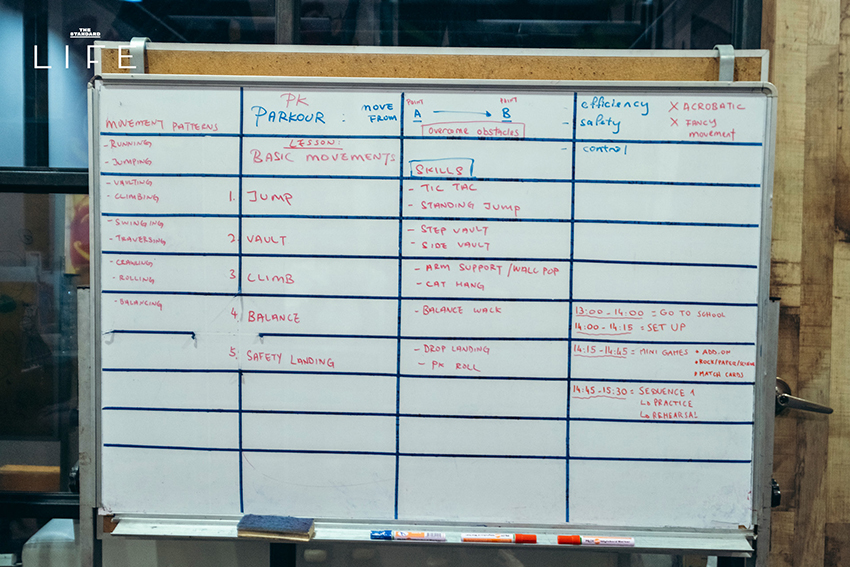 THE STANDARD
LIFE
MOVEMENT PATTERNS
- RUNNING
- JUMPING
- VAULTING
- CLIMBING
- SWINGING
- TRAVERSING
- CRAWLING
- ROLLING
- BALANCING
PK
PARKOUR : MOVE FROM
POINT A → POINT B
overcome obstacles
- efficiency
- safety
- control
X ACROBATIC
X FANCY movement
LESSON:
BASIC MOVEMENTS
SKILLS
1. JUMP
- TIC TAC
- STANDING JUMP
2. VAULT
- STEP VAULT
- SIDE VAULT
3. CLIMB
- ARM SUPPORT / WALL POP
- CAT HANG
4. BALANCE
- BALANCE WALK
5. SAFETY LANDING
- DROP LANDING
- PK ROLL
13:00 - 14:00 = GO TO SCHOOL
14:00 - 14:15 = SET UP
14:15 - 14:45 = MINI GAMES
• ADD-ON
• MATCH CARDS
14:45 - 15:30 = SEQUENCE 1
↳ PRACTICE
↳ REHEARSAL